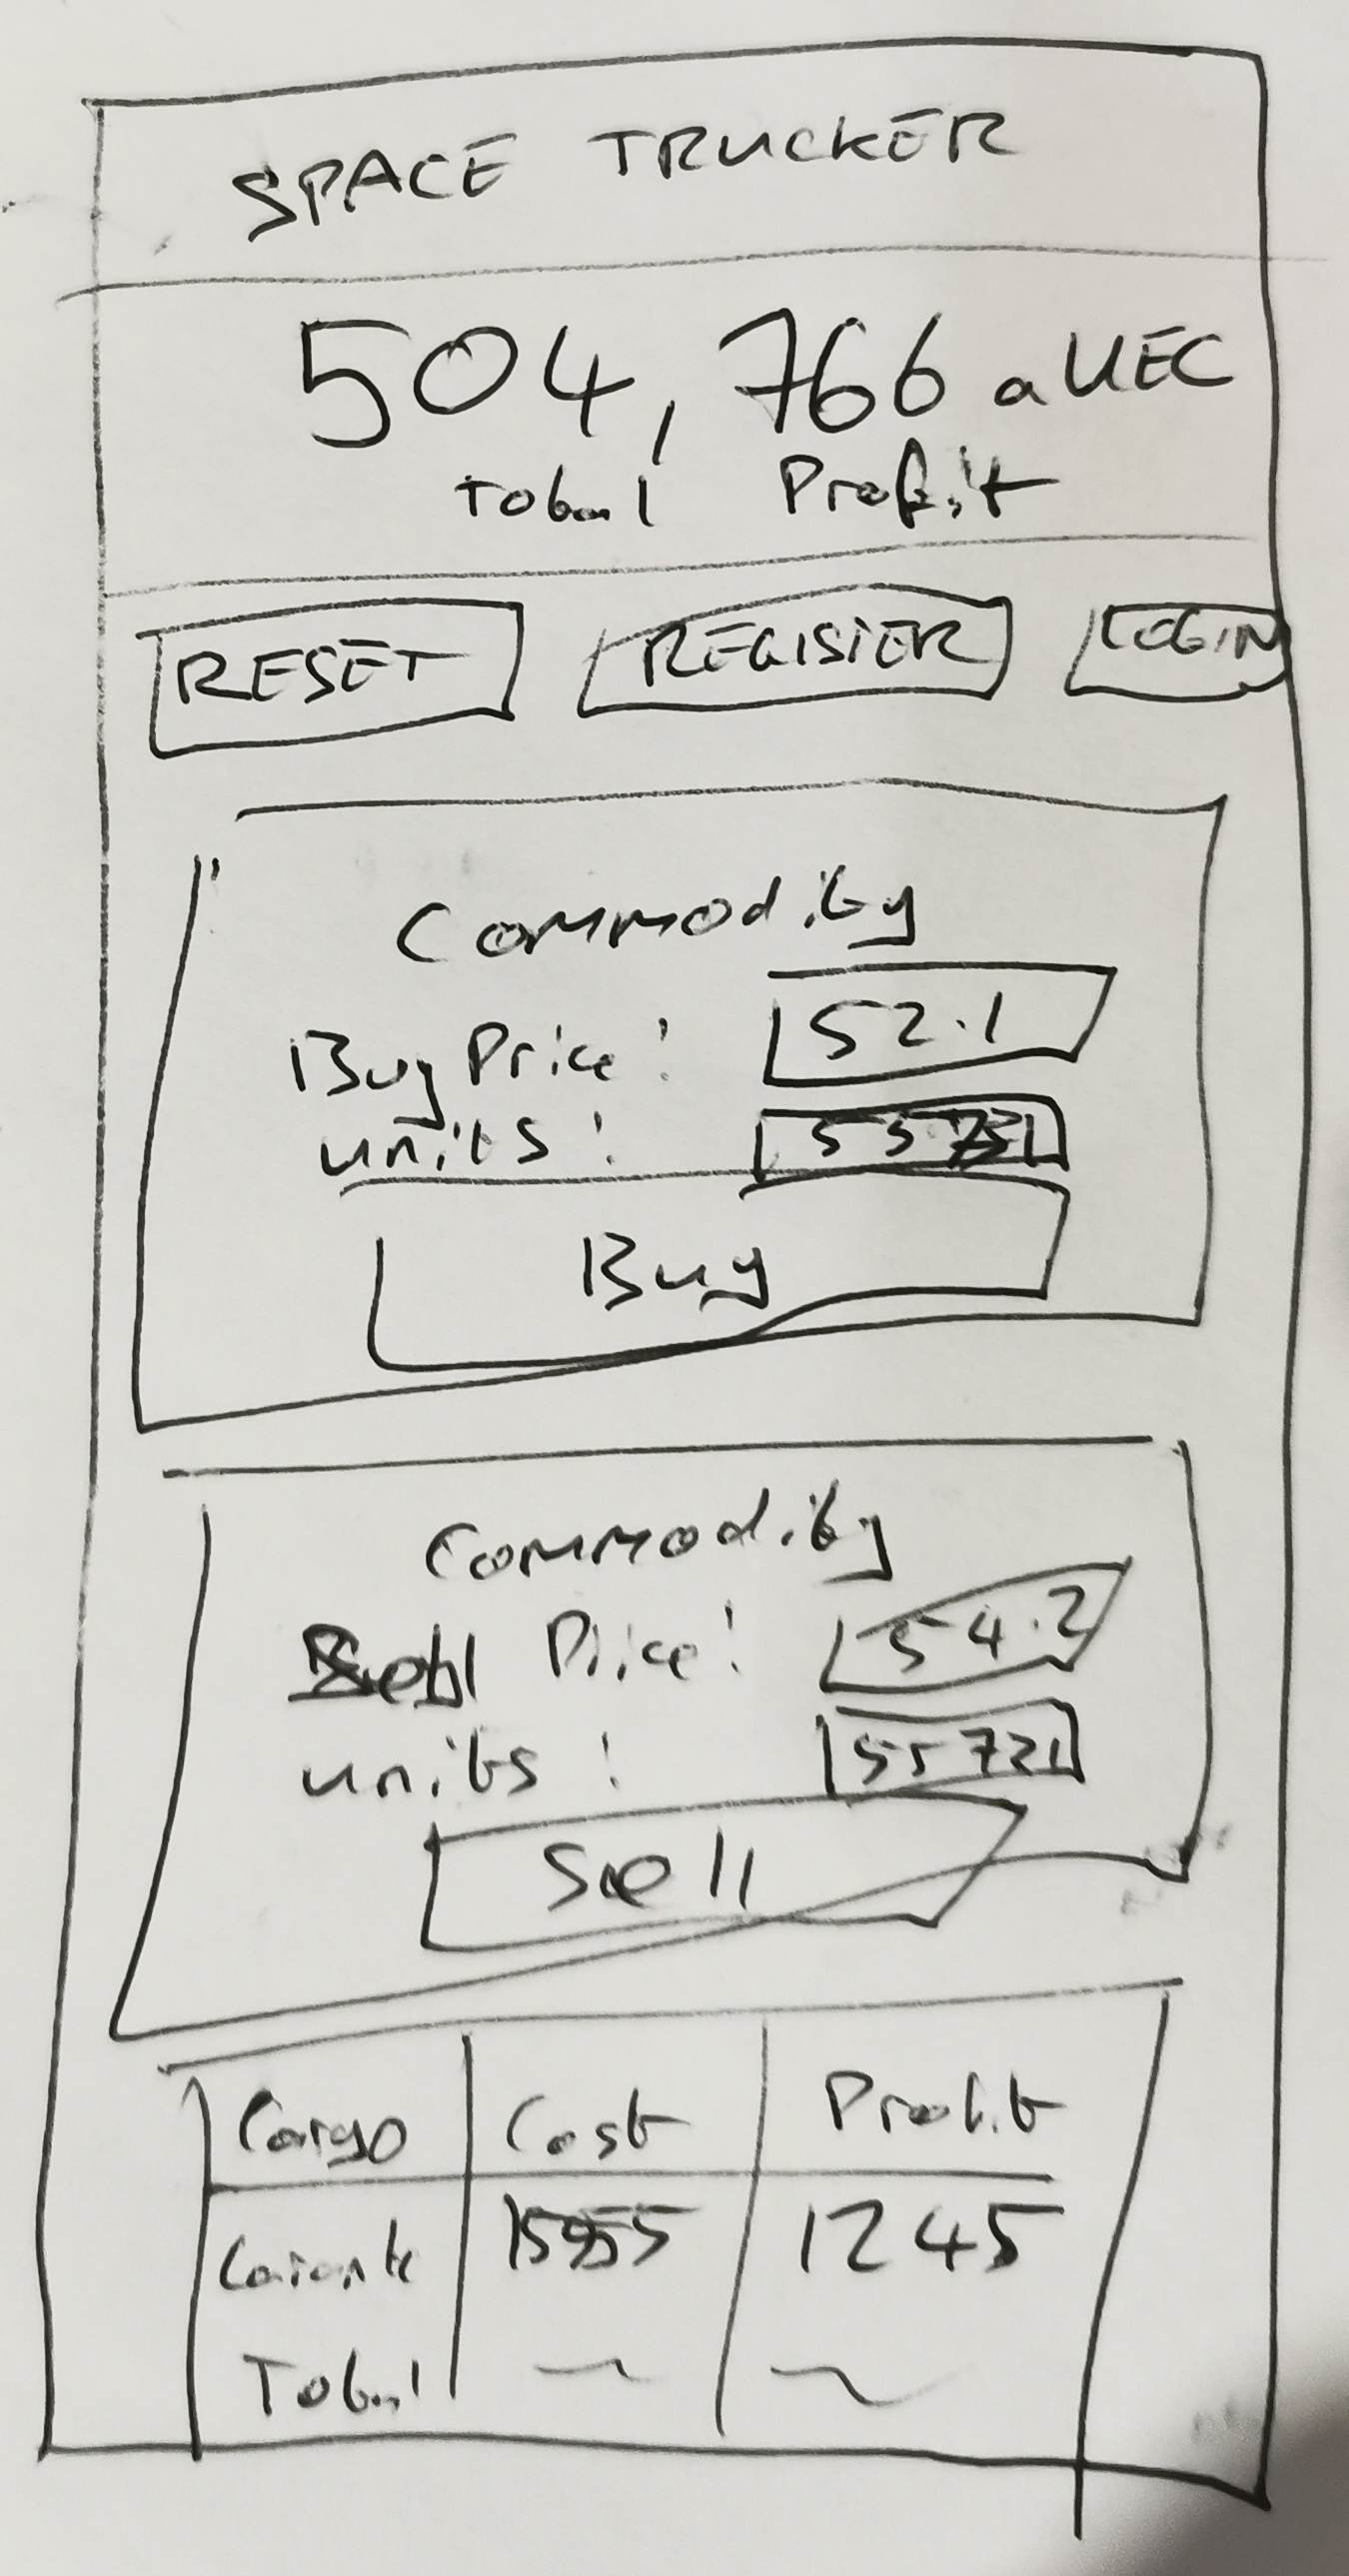 SPACE TRUCKER
504,766 aUEC
Total Profit
RESET REGISTER LOGIN
Commodity
Buy Price: 52.1
units:
Buy
Commodity
Sell Price: 54.2
units: 55721
Sell
Cargo Cost Profit
1245
Total